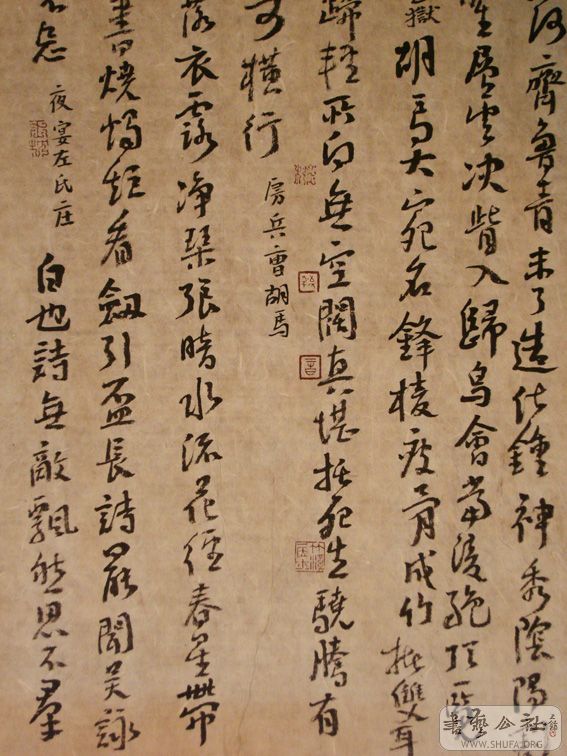 何齊魯青未了造化鍾神秀陰陽
生層雲決眥入歸鳥會當凌絕頂一覽
嶽 胡馬大宛名鋒棱瘦骨成竹批雙耳
蹄輕所向無空闊真堪托死生驍騰有
可橫行 房兵曹胡馬
落衣露淨琴張暗水流花徑春星帶
書燒燭短看劍引盃長詩罷聞吳詠
不忘 夜宴左氏庄 白也詩無敵飄然思不群
書藝公社
WWW.SHUFA.ORG